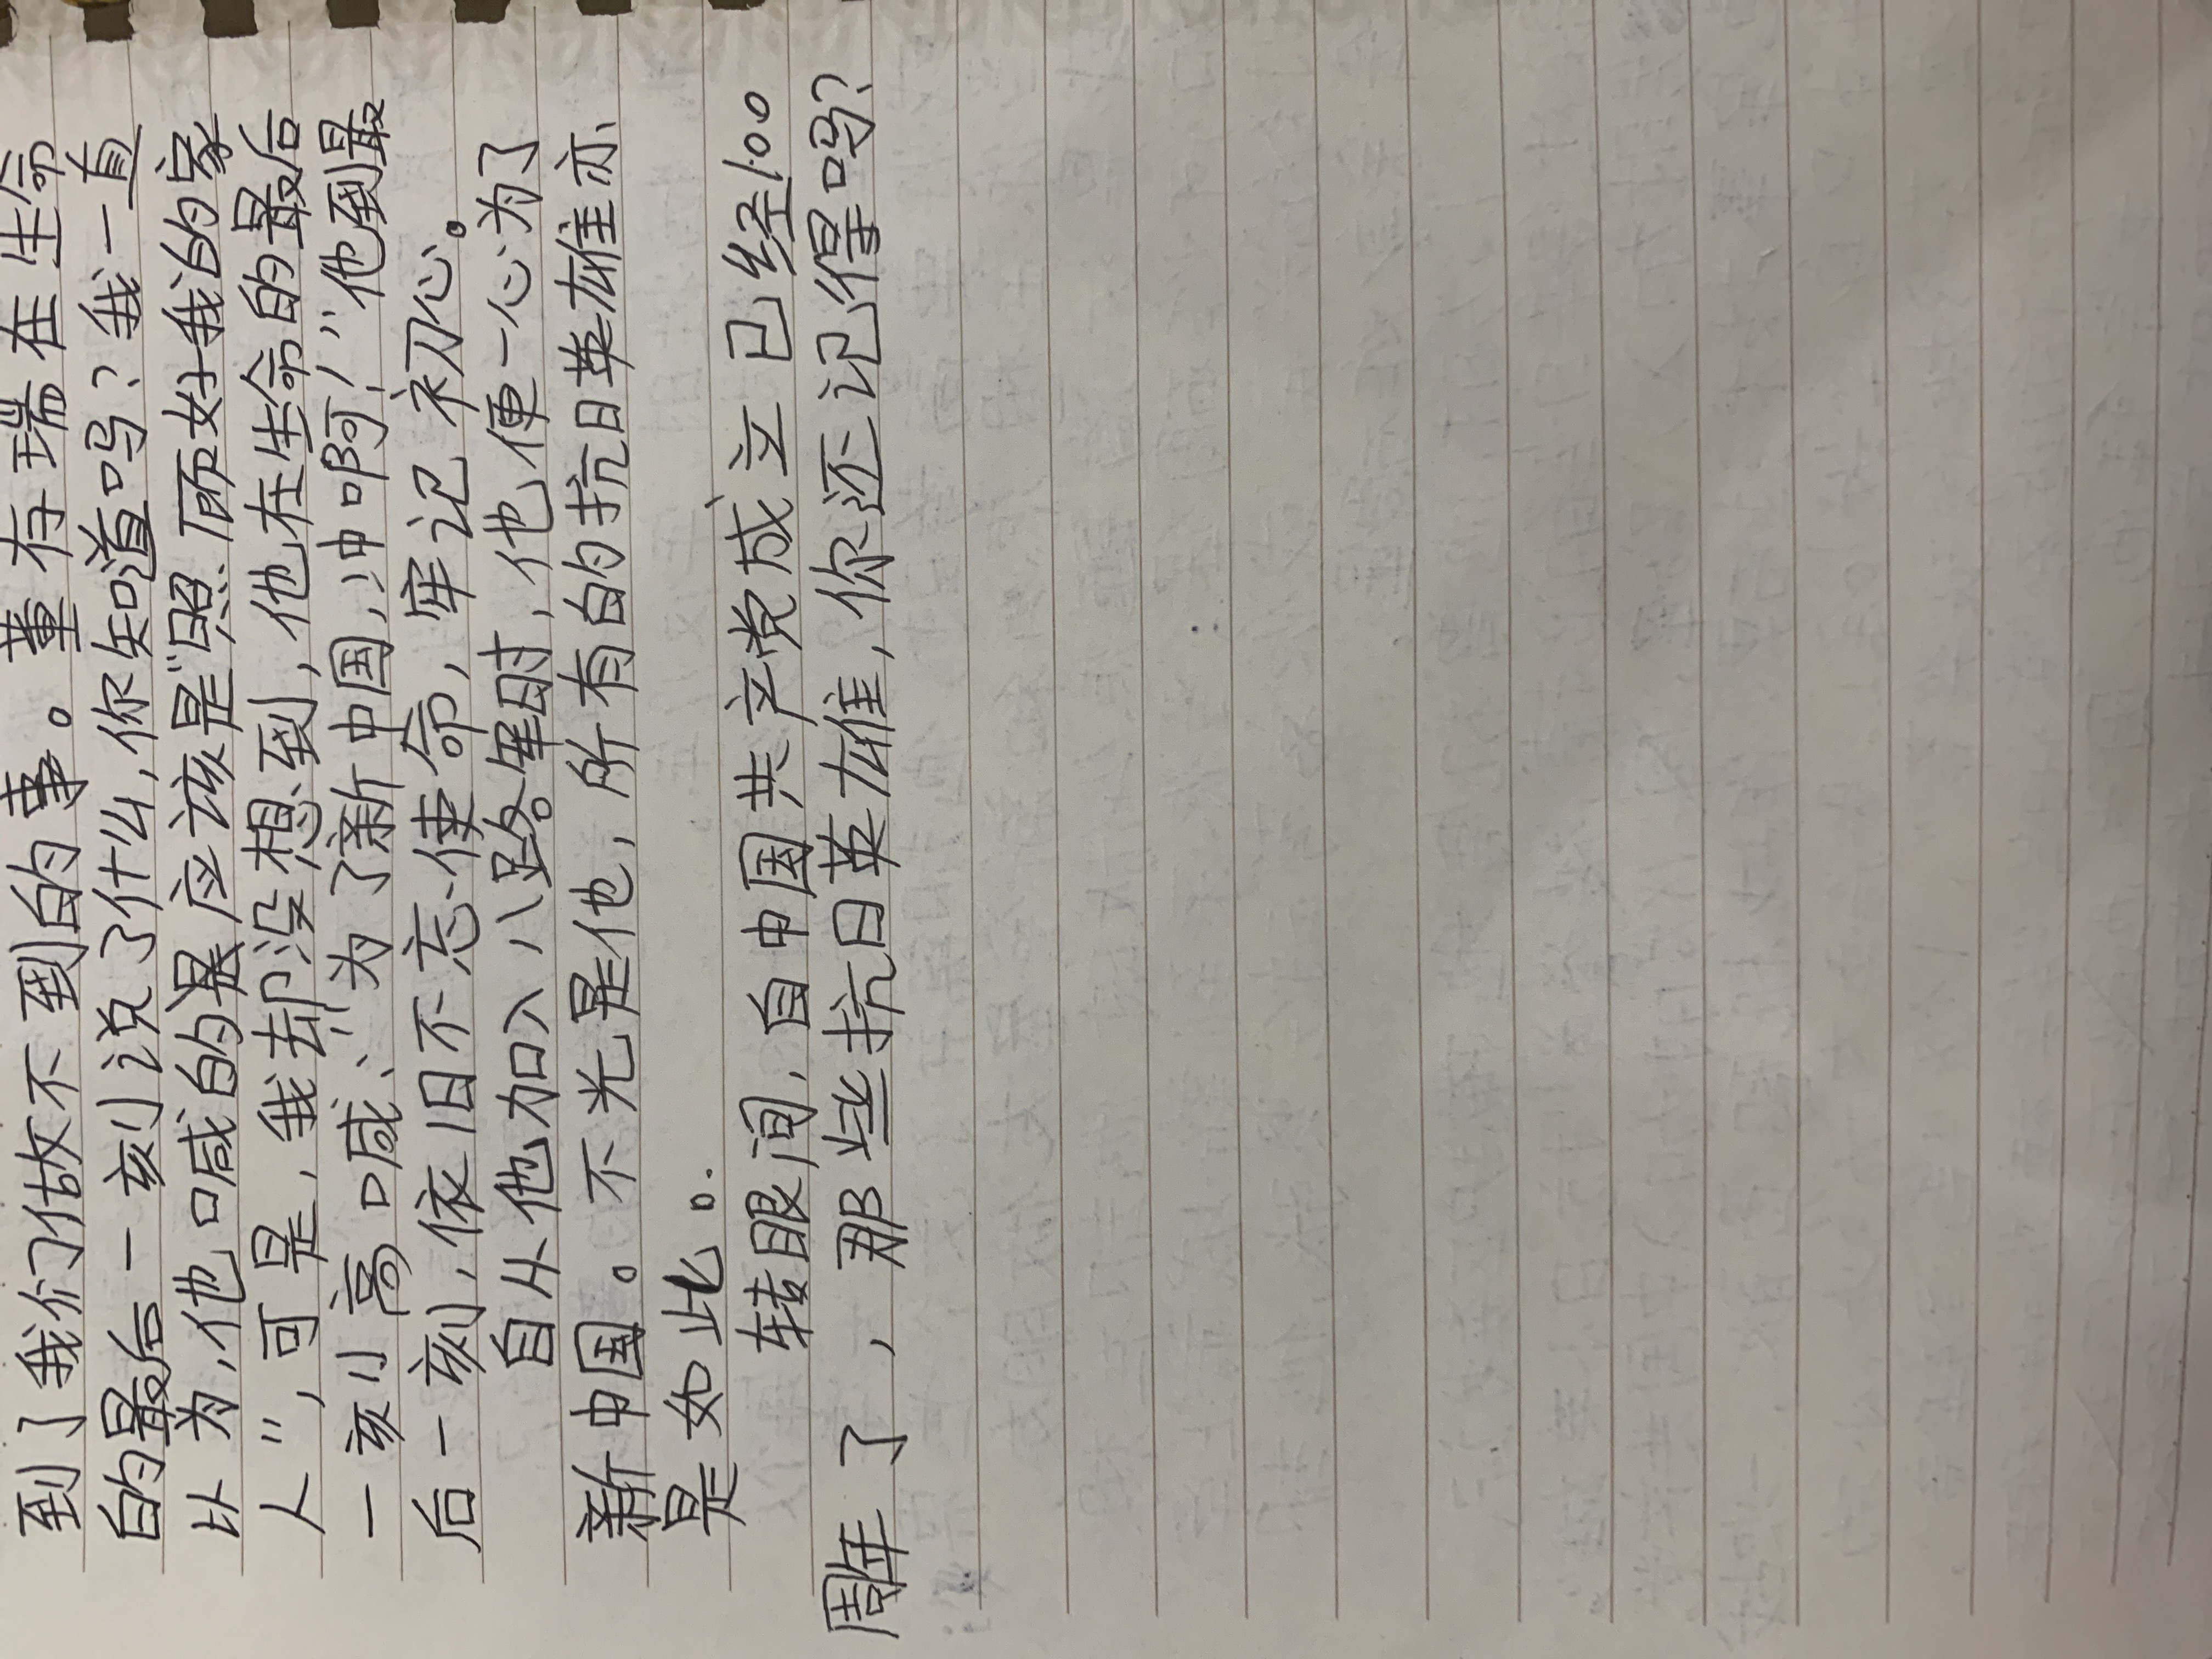 到了我们做不到的事。董存瑞在生命
的最后一刻说了什么,你知道吗?我一直
以为,他口咸的是应该是“照顾好我的家
人”,可是,我却没想到,他在生命的最后
一刻高喊:“为了新中国,冲啊!”他到最
后一刻,依旧不忘使命,牢记初心。
自从他加入八路军时,他便一心为了
新中国。不光是他,所有的抗日英雄亦
是如此。
转眼间,自中国共产党成立已经100
周年了,那些抗日英雄,你还记得吗?